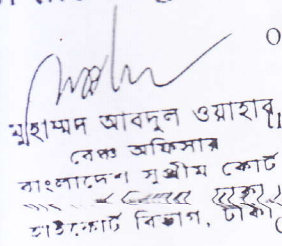 মুহাম্মদ আবদুল ওয়াহাব
বেঞ্চ অফিসার
বাংলাদেশ সুপ্রীম কোর্ট
হাইকোর্ট বিভাগ, ঢাকা